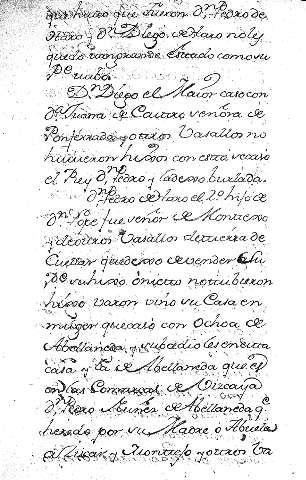 que huuo que fueron Dn. Pedro de
Haro y Dn. Diego de Haro no les
quedo tan grande Estado como su
Pe. tubo
Dn. Diego el Maior caso con
Da. Juana de Castro señora de
Ponferrada y otros Vasallos no
hubieron hijos con esta caso
el Rey dn. Pedro y la dexo burlada
dn. Pedro de Haro el 2o. hijo de
dn. fue señor de Montexo
y de otros Vasallos de tierra de
Cuellar que dexo de vender Su
Pe. su hijo ó nieto no tubieron
hijo varon vino su Casa en
muger que caso con Ochoa de
Abellaneda y subcedioles en esta
casa y la de Abellaneda que es
en las Comarcas de Vizcaya
dn. Pedro Nuñez de Abellaneda q.
heredo por su Madre ó Abuela
á y Montejo y otros Va